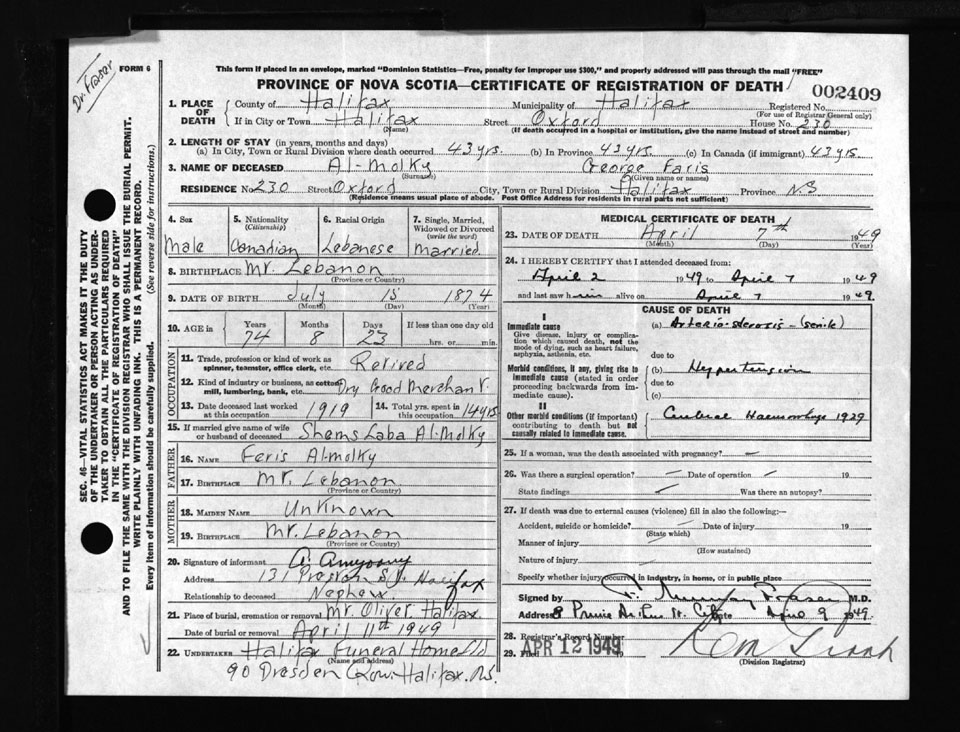 Dr. Fraser
FORM 6
This form if placed in an envelope, marked "Dominion Statistics—Free, penalty for improper use $300," and properly addressed will pass through the mail "FREE"
PROVINCE OF NOVA SCOTIA—CERTIFICATE OF REGISTRATION OF DEATH
002409
SEC. 46—VITAL STATISTICS ACT MAKES IT THE DUTY
OF THE UNDERTAKER OR PERSON ACTING AS UNDER-
TAKER TO OBTAIN ALL THE PARTICULARS REQUIRED
IN THE "CERTIFICATE OF REGISTRATION OF DEATH"
AND TO FILE THE SAME WITH THE DIVISION REGISTRAR WHO SHALL ISSUE THE BURIAL PERMIT.
WRITE PLAINLY WITH UNFADING INK. THIS IS A PERMANENT RECORD.
Every item of information should be carefully supplied. (See reverse side for instructions.)
1. PLACE OF DEATH
County of Halifax Municipality of Halifax Registered No.
(For use of Registrar General only)
If in City or Town Halifax Street Oxford House No. 230
(Name) (If death occurred in a hospital or institution, give the name instead of street and number)
2. LENGTH OF STAY (in years, months and days)
(a) In City, Town or Rural Division where death occurred 43 yrs. (b) In Province 43 yrs. (c) In Canada (if immigrant) 43 yrs.
3. NAME OF DECEASED Al-Molky George Faris
(Surname) (Given name or names)
RESIDENCE No 230 Street Oxford City, Town or Rural Division Halifax Province N.S
(Residence means usual place of abode. Post Office Address for residents in rural parts not sufficient)
4. Sex
Male
5. Nationality
(Citizenship)
Canadian
6. Racial Origin
Lebanese
7. Single, Married,
Widowed or Divorced
(write the word)
Married.
8. BIRTHPLACE Mt. Lebanon
(Province or Country)
9. DATE OF BIRTH July 15 1874
(Month) (Day) (Year)
10. AGE in
Years Months Days If less than one day old
74 8 23 hrs. or min.
OCCUPATION
11. Trade, profession or kind of work as
spinner, teamster, office clerk, etc. Retired
12. Kind of industry or business, as cotton
mill, lumbering, bank, etc. Dry Good Merchant.
13. Date deceased last worked
at this occupation 1919
14. Total yrs. spent in
this occupation 14 yrs.
15. If married give name of wife
or husband of deceased Shems Laba Al-Molky
FATHER
16. NAME Feris Al-molky
17. BIRTHPLACE Mt. Lebanon
(Province or Country)
MOTHER
18. MAIDEN NAME Unknown
19. BIRTHPLACE Mt. Lebanon
(Province or Country)
20. Signature of informant A.
Address 131 Preston St. Halifax
Relationship to deceased Nephew.
21. Place of burial, cremation or removal Mt. Oliver Halifax.
Date of burial or removal April 11th 1949
22. UNDERTAKER Halifax Funeral Home Ltd
(Name and address)
90 Dresden Row. Halifax. N.S.
MEDICAL CERTIFICATE OF DEATH
23. DATE OF DEATH April 7th 1949
(Month) (Day) (Year)
24. I HEREBY CERTIFY that I attended deceased from:
April 2 1949 to April 7 1949
and last saw him alive on April 7 1949
CAUSE OF DEATH
I
Immediate cause
Give disease, injury or complica-
tion which caused death, not the
mode of dying, such as heart failure,
asphyxia, asthenia, etc.
(a) Arterio-sclerosis - (senile)
due to
Morbid conditions, if any, giving rise to
immediate cause (stated in order
proceeding backwards from im-
mediate cause).
(b) Hypertension
due to
(c)
II
Other morbid conditions (if important)
contributing to death but not
causally related to immediate cause.
Cerebral Haemorrhage 1929
25. If a woman, was the death associated with pregnancy?
26. Was there a surgical operation? Date of operation 19
State findings Was there an autopsy?
27. If death was due to external causes (violence) fill in also the following:—
Accident, suicide or homicide? Date of injury 19
(State which)
Manner of injury
(How sustained)
Nature of injury
Specify whether injury occurred in industry, in home, or in public place
Signed by F. Murray Fraser M.D.
Address 8 Prince Arthur St. City Date April 9 1949
28. Registrar's Record Number
29. Filed APR 12 1949
(Division Registrar)